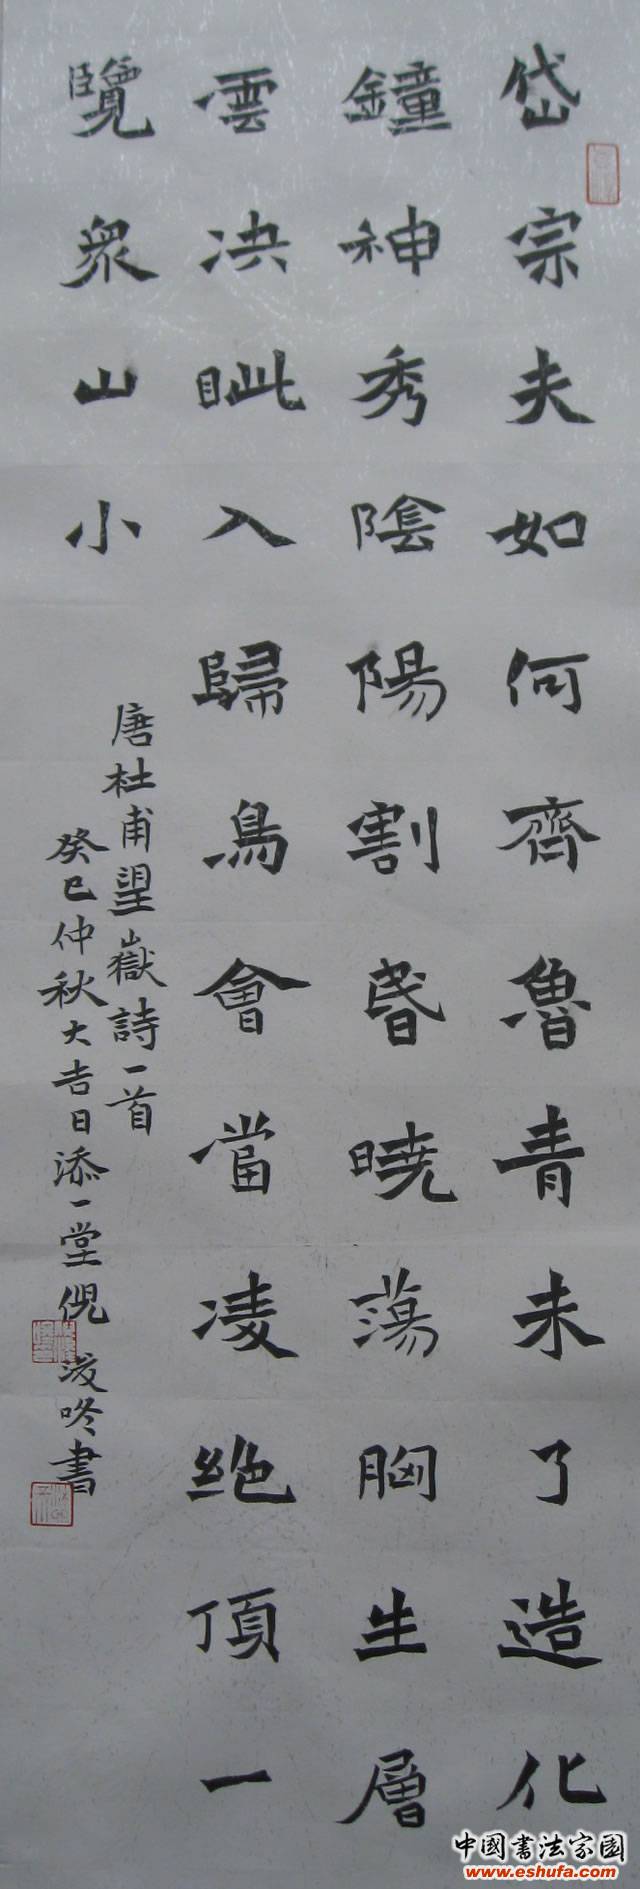 岱宗夫如何齊魯青未了造化
鐘神秀陰陽割昏曉蕩胸生層
雲决眦入歸鳥會當凌絶頂一
覽衆山小
唐杜甫望嶽詩一首
癸巳仲秋大吉日添一堂倪浚咚書
中國書法家園
www.eshufa.com